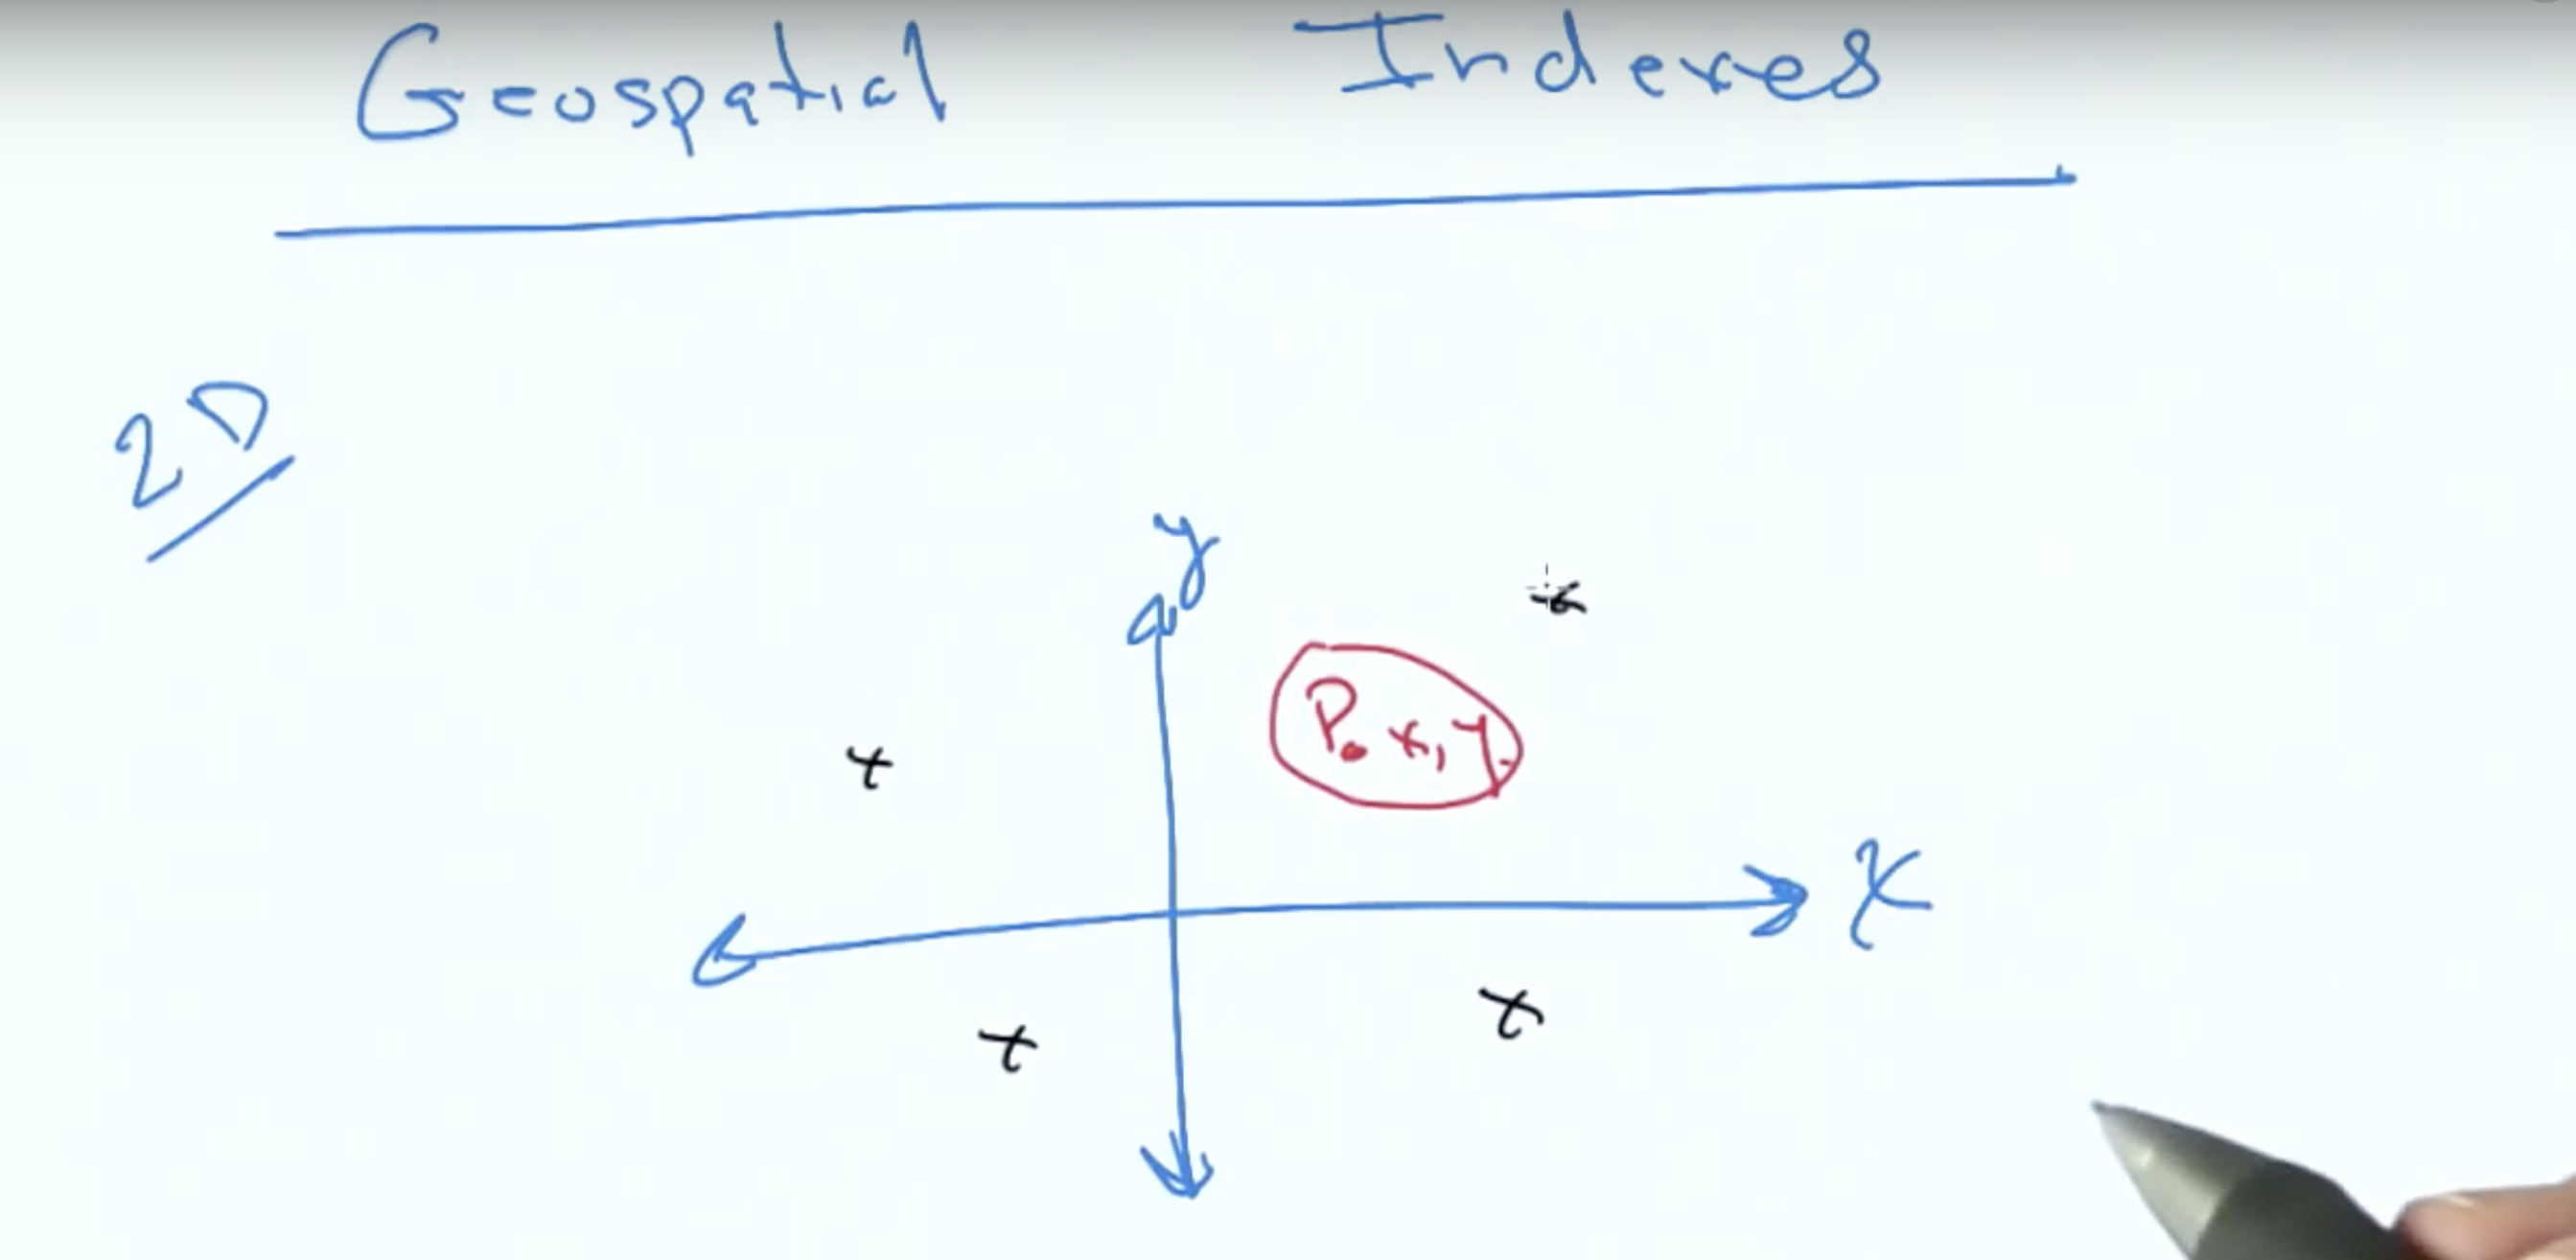 Geospatial Indexes
2D
y
P. x, y
X